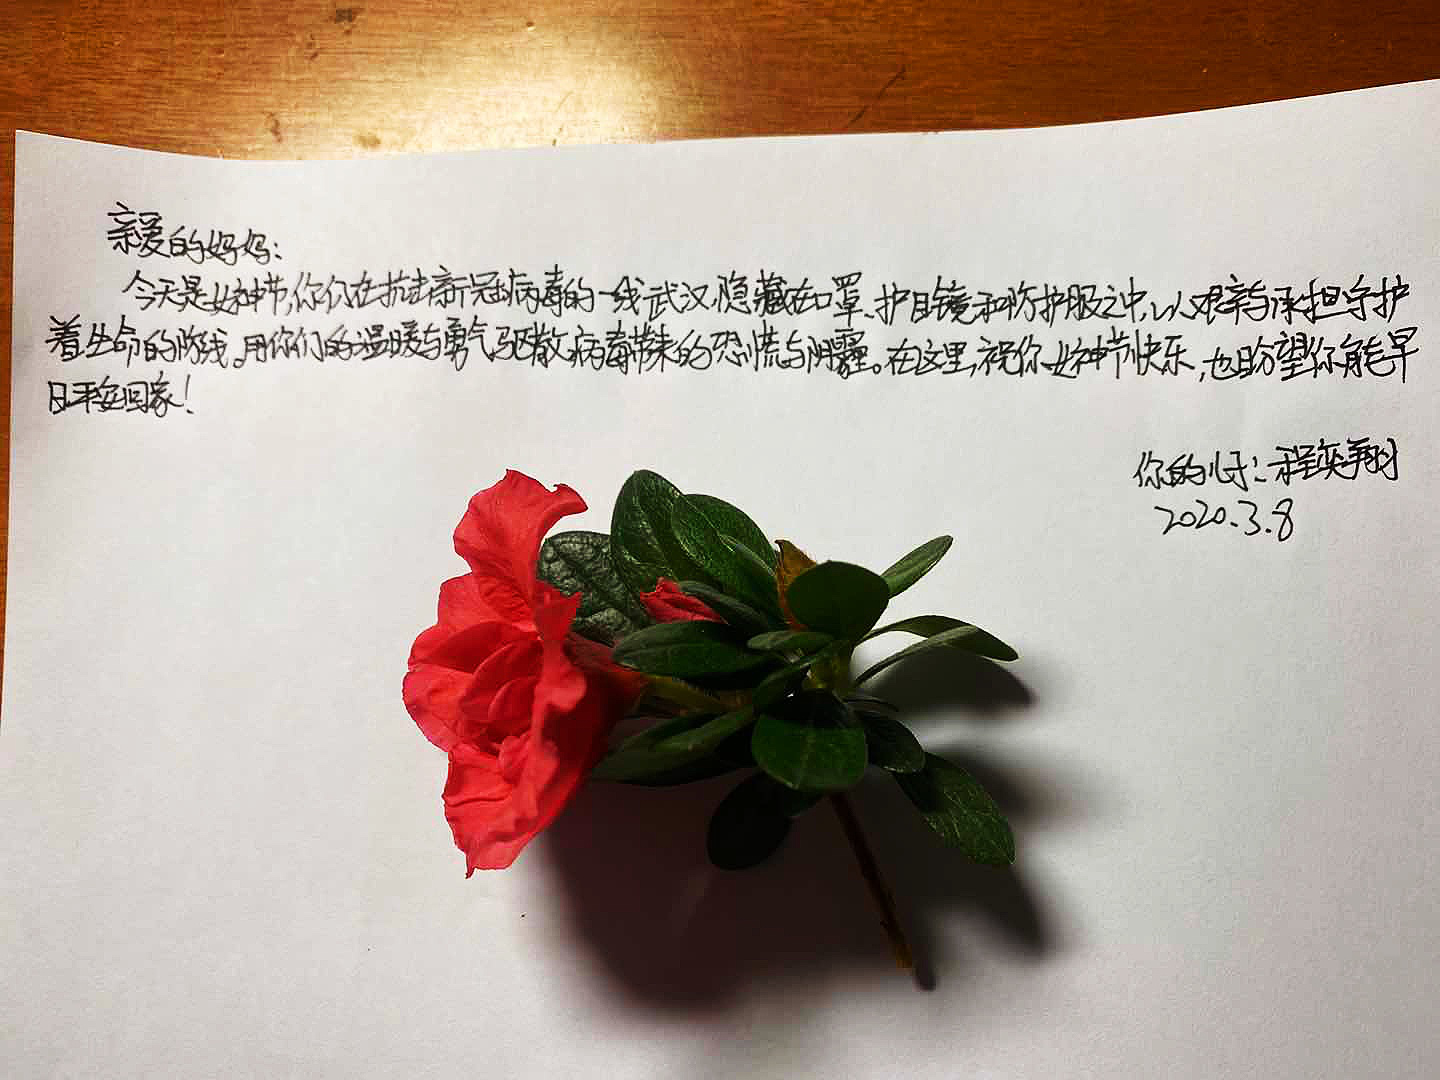 亲爱的妈妈：
今天是女神节，你们在抗击新冠病毒的一线武汉，隐藏在口罩、护目镜和防护服之中，以艰辛与承担守护
着生命的防线。用你们的温暖与勇气驱散病毒带来的恐慌与阴霾。在这里，祝你女神节快乐，也盼望你能早
日平安回家！
你的儿子：程奕翔
2020.3.8